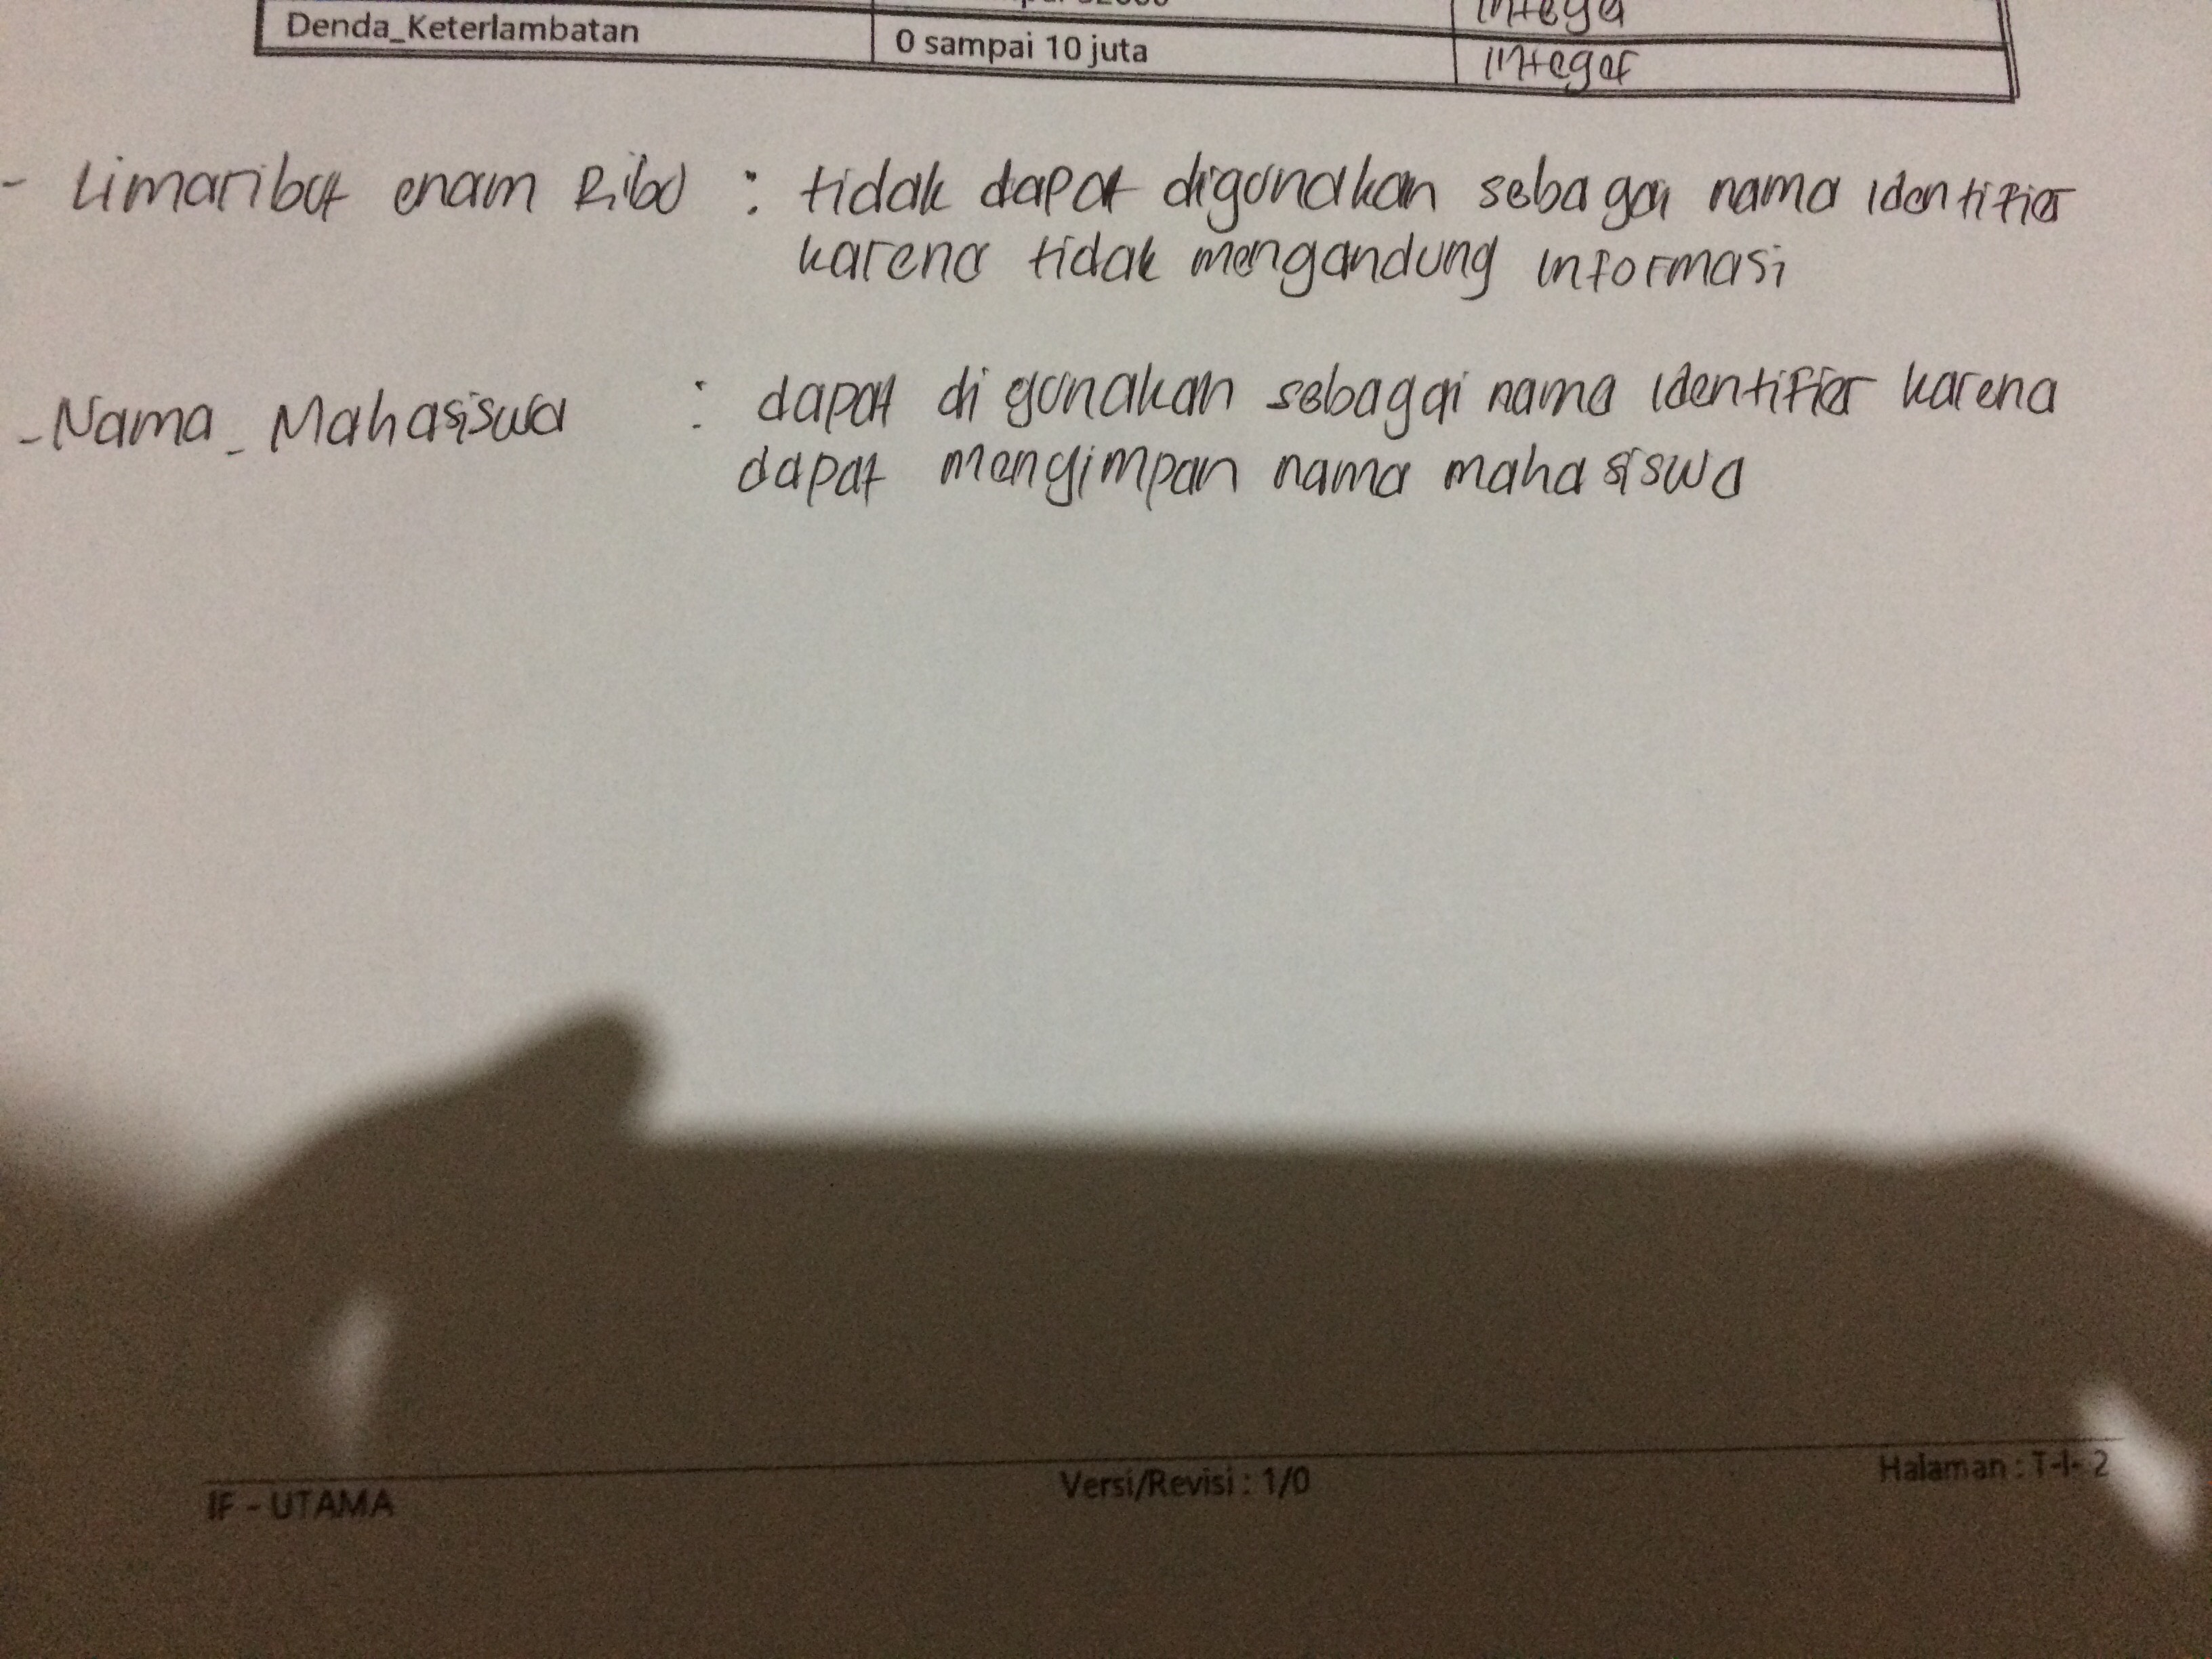 Denda_Keterlambatan 0 sampai 10 juta integer
- Limaribut enam Ribu : tidak dapat digunakan sebagai nama identifier
karena tidak mengandung informasi
- Nama_Mahasiswa : dapat di gunakan sebagai nama identifier karena
dapat menyimpan nama maha siswa
IF - UTAMA Versi/Revisi : 1/0 Halaman : T-I- 2